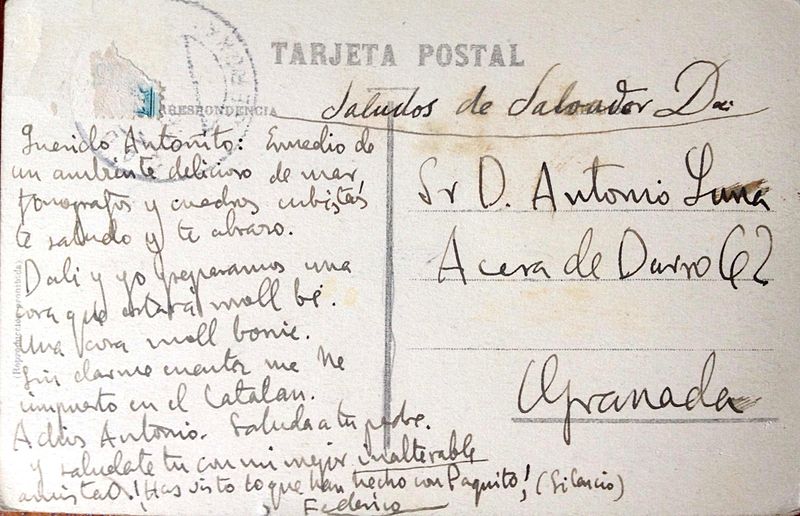 TARJETA POSTAL
CORRESPONDENCIA
Saludos de Salvador Dali
Querido Antoñito: Enmedio de
un ambiente delicioso de mar,
fonografos y cuadros cubistas
te saludo y te abrazo.
Dali y yo preparamos una
cosa que estará moll bé.
Una cosa moll bonic.
Sin darme cuenta me he
impuesto en el Catalan.
Adios Antonio. Saluda a tu padre.
y saludate tu con mi mejor inalterable
amistad. ¡Has visto lo que han hecho con Paquito! (Silencio)
Federico
Sr D. Antonio Luna
Acera de Darro 62
Granada
(Reproducción prohibida)